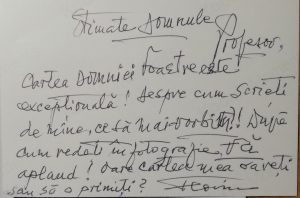 Stimate Domnule
Profesor,
Cartea Domniei Voastre este
excepțională! Despre cum scrieți
de mine, ce să mai vorbim?! După
cum redați în fotografie, Vă
aplaud! Oare cartea mea o aveți
sau să o primiți?